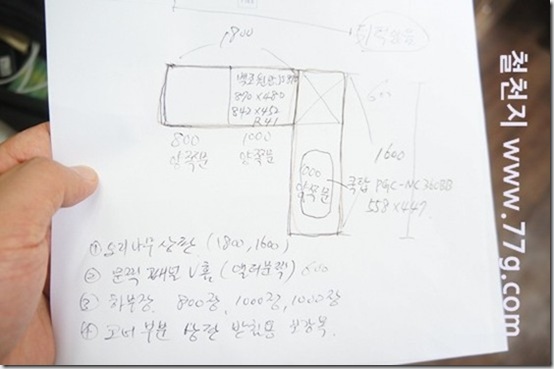 1800
870x480
842x452
R41
800
양쪽문
1000
양쪽문
600
1600
1000
양쪽문
쿡탑 PGC-NC360BB
558x447
① 오리나무 상판 (1800, 1600)
② 문짝 패널 V홈 (엘더문짝) 600
③ 하부장 800장, 1000장, 1000장
④ 코너 부분 상판 받침용 보강목.
철천지 www.77g.com